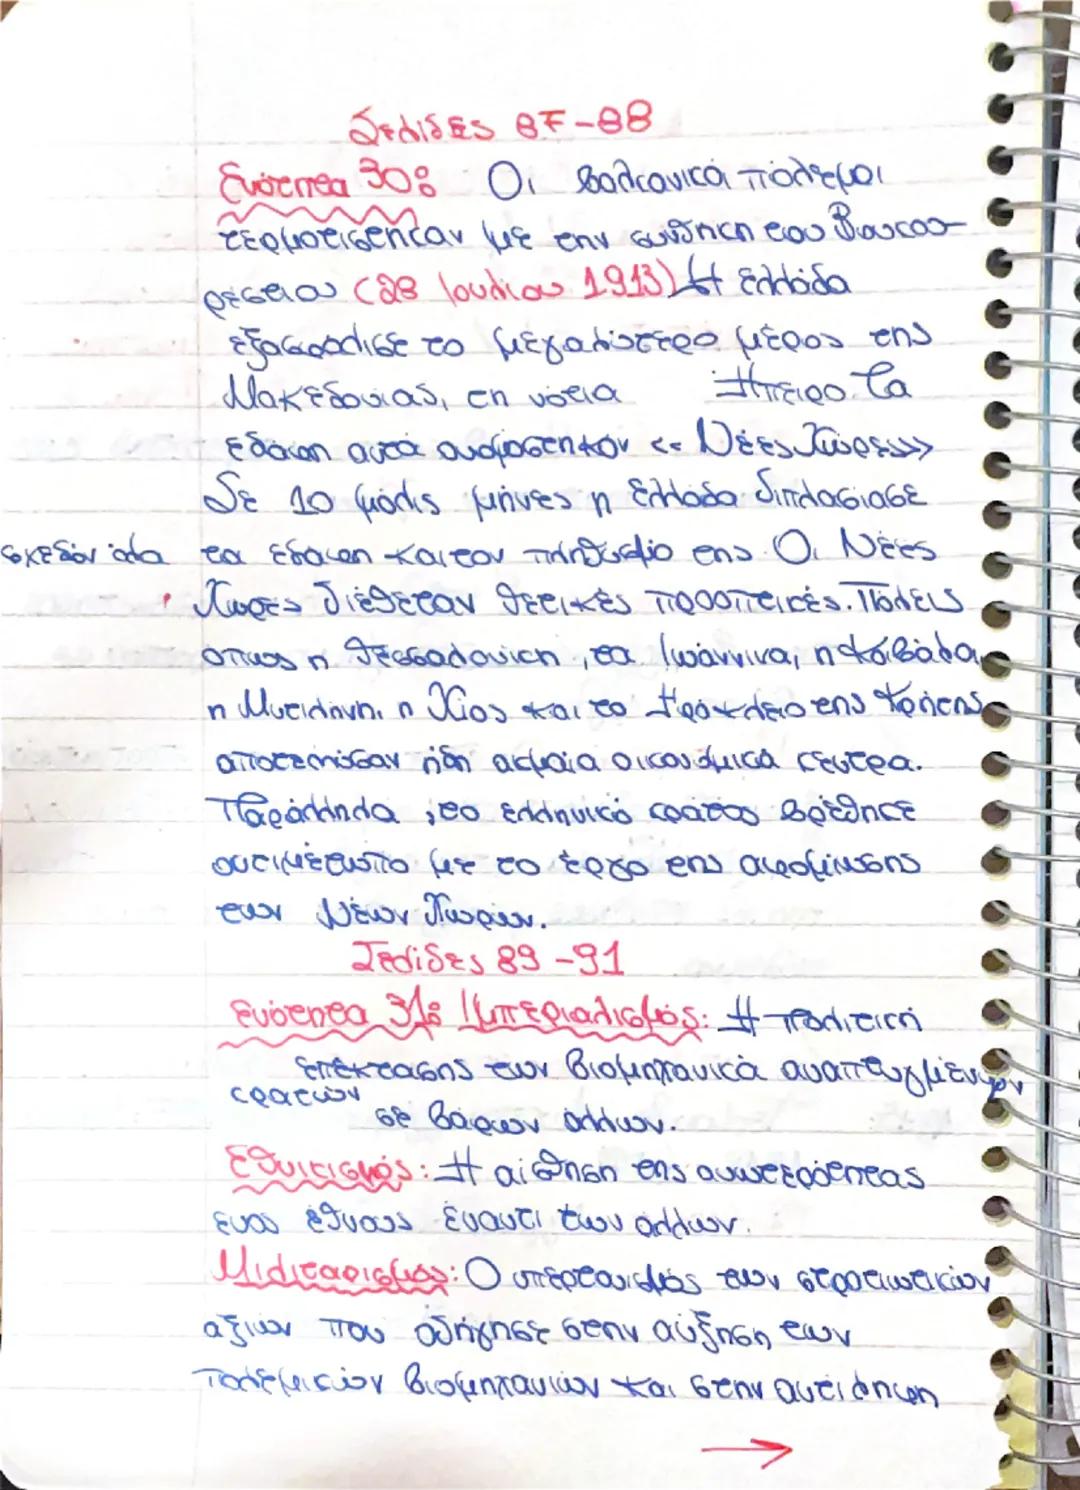 Σελίδες 87-88
Ενότητα 30: Οι Βαλκανικοί πόλεμοι
τερματίστηκαν με την συνθήκη του Βουκου-
ρεστίου (28 Ιουλίου 1913) Η Ελλάδα
εξασφάλισε το μεγαλύτερο μέρος της
Μακεδονίας, τη νότια Ήπειρο. Τα
εδάφη αυτά ονομάστηκαν << Νέες Χώρες>>
Σε 10 μόλις μήνες η Ελλάδα διπλασίασε
σχεδόν όλα τα εδάφη και τον πληθυσμό της. Οι Νέες
Χώρες διέθεταν θετικές προοπτικές. Πόλεις
όπως η Θεσσαλονίκη, τα Ιωάννινα, η Καβάλα,
η Μυτιλήνη, η Χίος και το Ηράκλειο της Κρήτης
αποτελούσαν ήδη ακμαία οικονομικά κέντρα.
Παράλληλα, το ελληνικό κράτος βρέθηκε
αντιμέτωπο με το έργο της αφομίωσης
των Νέων Χωρών.
Σελίδες 89-91
Ενότητα 31: Ιμπεριαλισμός: Η πολιτική
επέκτασης των βιομηχανικά αναπτυγμένων
κρατών σε βάρων άλλων.
Εθνικισμός: Η αίσθηση της ανωτερότητας
ενός έθνους έναντι των άλλων.
Μιλιταρισμός: Ο υπερτονισμός των στρατιωτικών
αξιών που οδήγησε στην αύξηση των
πολεμικών βιομηχανιών και στην αντίληψη